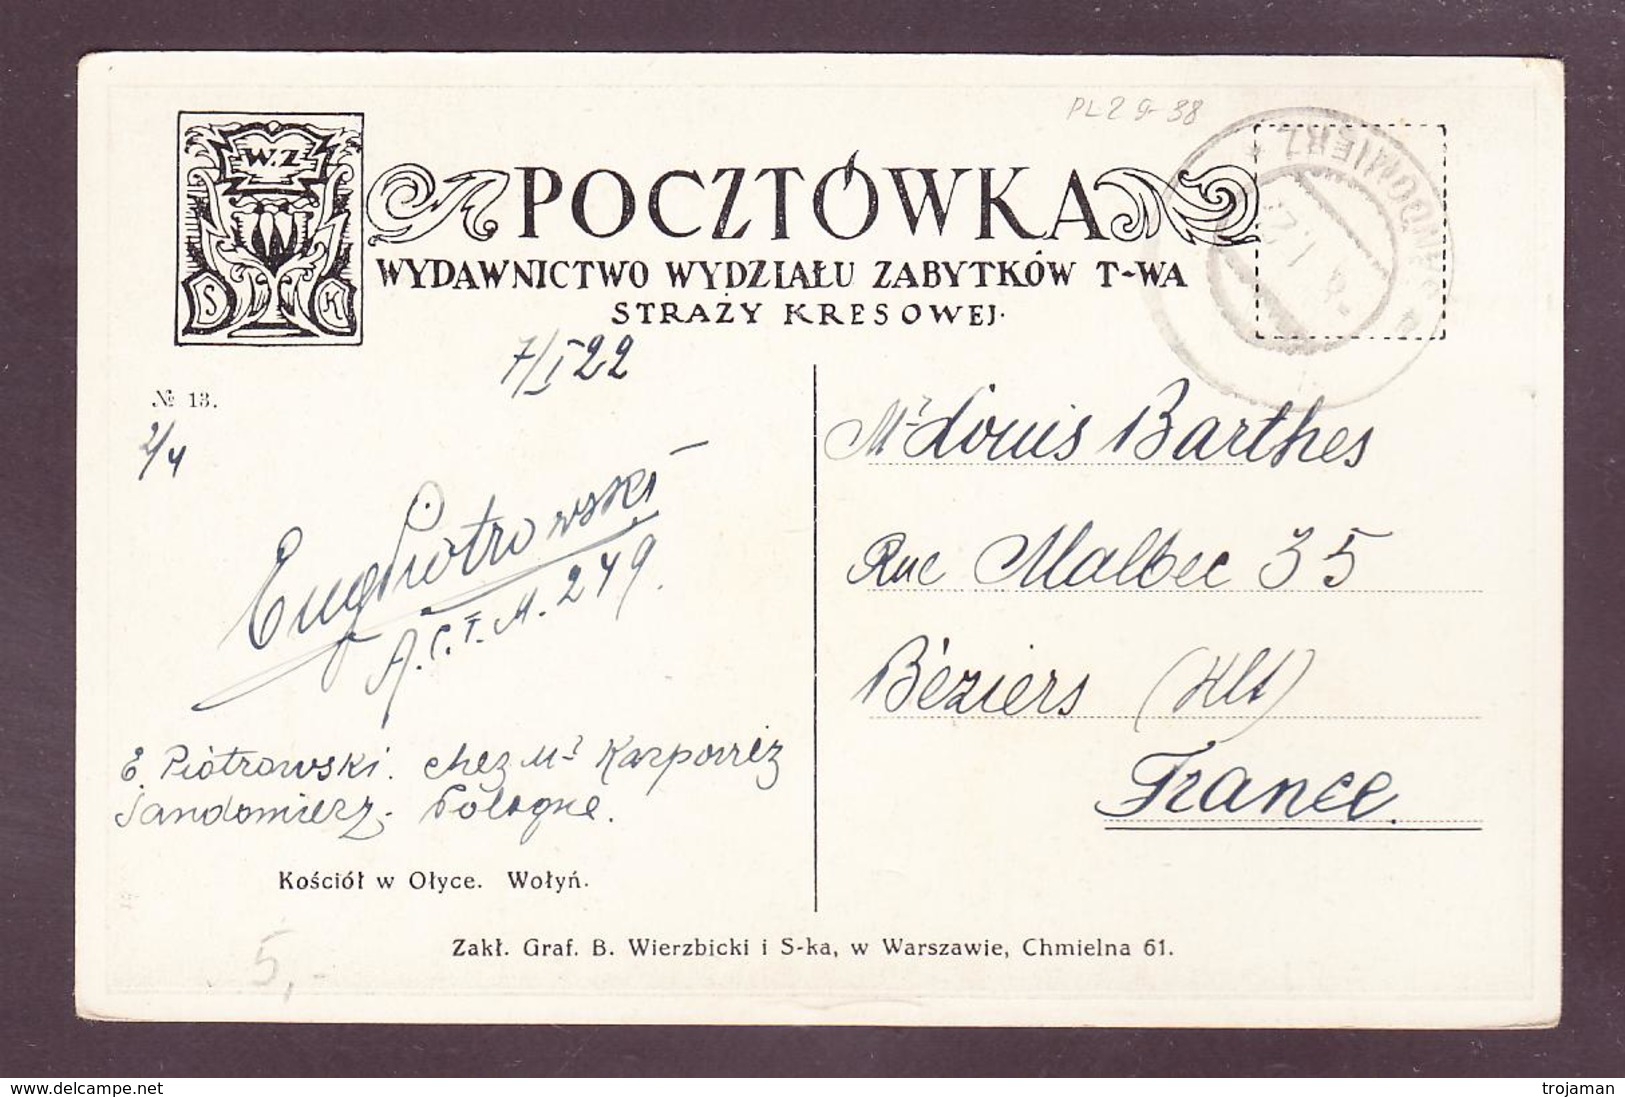 PL2 9-38
W.Z
S K
POCZTÓWKA
WYDAWNICTWO WYDZIAŁU ZABYTKÓW T-WA
STRAŻY KRESOWEJ.
SANDOMIERZ
7/I 22
№ 13.
2/4
Eug Piotrowski
A.C.T.M. 249.
E. Piotrowski. chez Mr Karpowicz
Sandomierz. Pologne.
Mr Louis Barthes
Rue Malbec 35
Béziers (Hlt)
France.
Kościół w Ołyce. Wołyń.
Zakł. Graf. B. Wierzbicki i S-ka, w Warszawie, Chmielna 61.
5,-
delcampe.net
trojaman